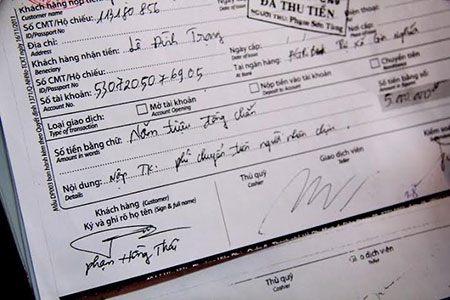 Khách hàng nộp tiền
Customer name
ĐÃ THU TIỀN
NGƯỜI THU: Phạm Sơn Tùng
Số CMT/Hộ chiếu: 113180856
ID/Passport No
Địa chỉ: Ngày cấp:
Khách hàng nhận tiền: Lê Đình Trọng
Beneficiary
Số CMT/Hộ chiếu: Ngày cấp:
ID/Passport No
Số tài khoản: 5307205076905 Tại ngân hàng:
Loại giao dịch: Mở tài khoản Nộp tiền vào tài khoản Chuyển tiền
Type of transaction Account Opening Deposit to Account
Số tiền bằng số:
5.000.000đ
Số tiền bằng chữ: Năm triệu đồng chẵn
Amount in words
Nội dung: Nộp TK. phí chuyển tiền người nhận chịu
Details
Khách hàng (Customer) Thủ quỹ Giao dịch viên Kiểm soát
Ký và ghi rõ họ tên (Sign & full name) Cashier Teller
Phạm Hồng Thái
Thủ quỹ Giao dịch viên
Cashier Teller